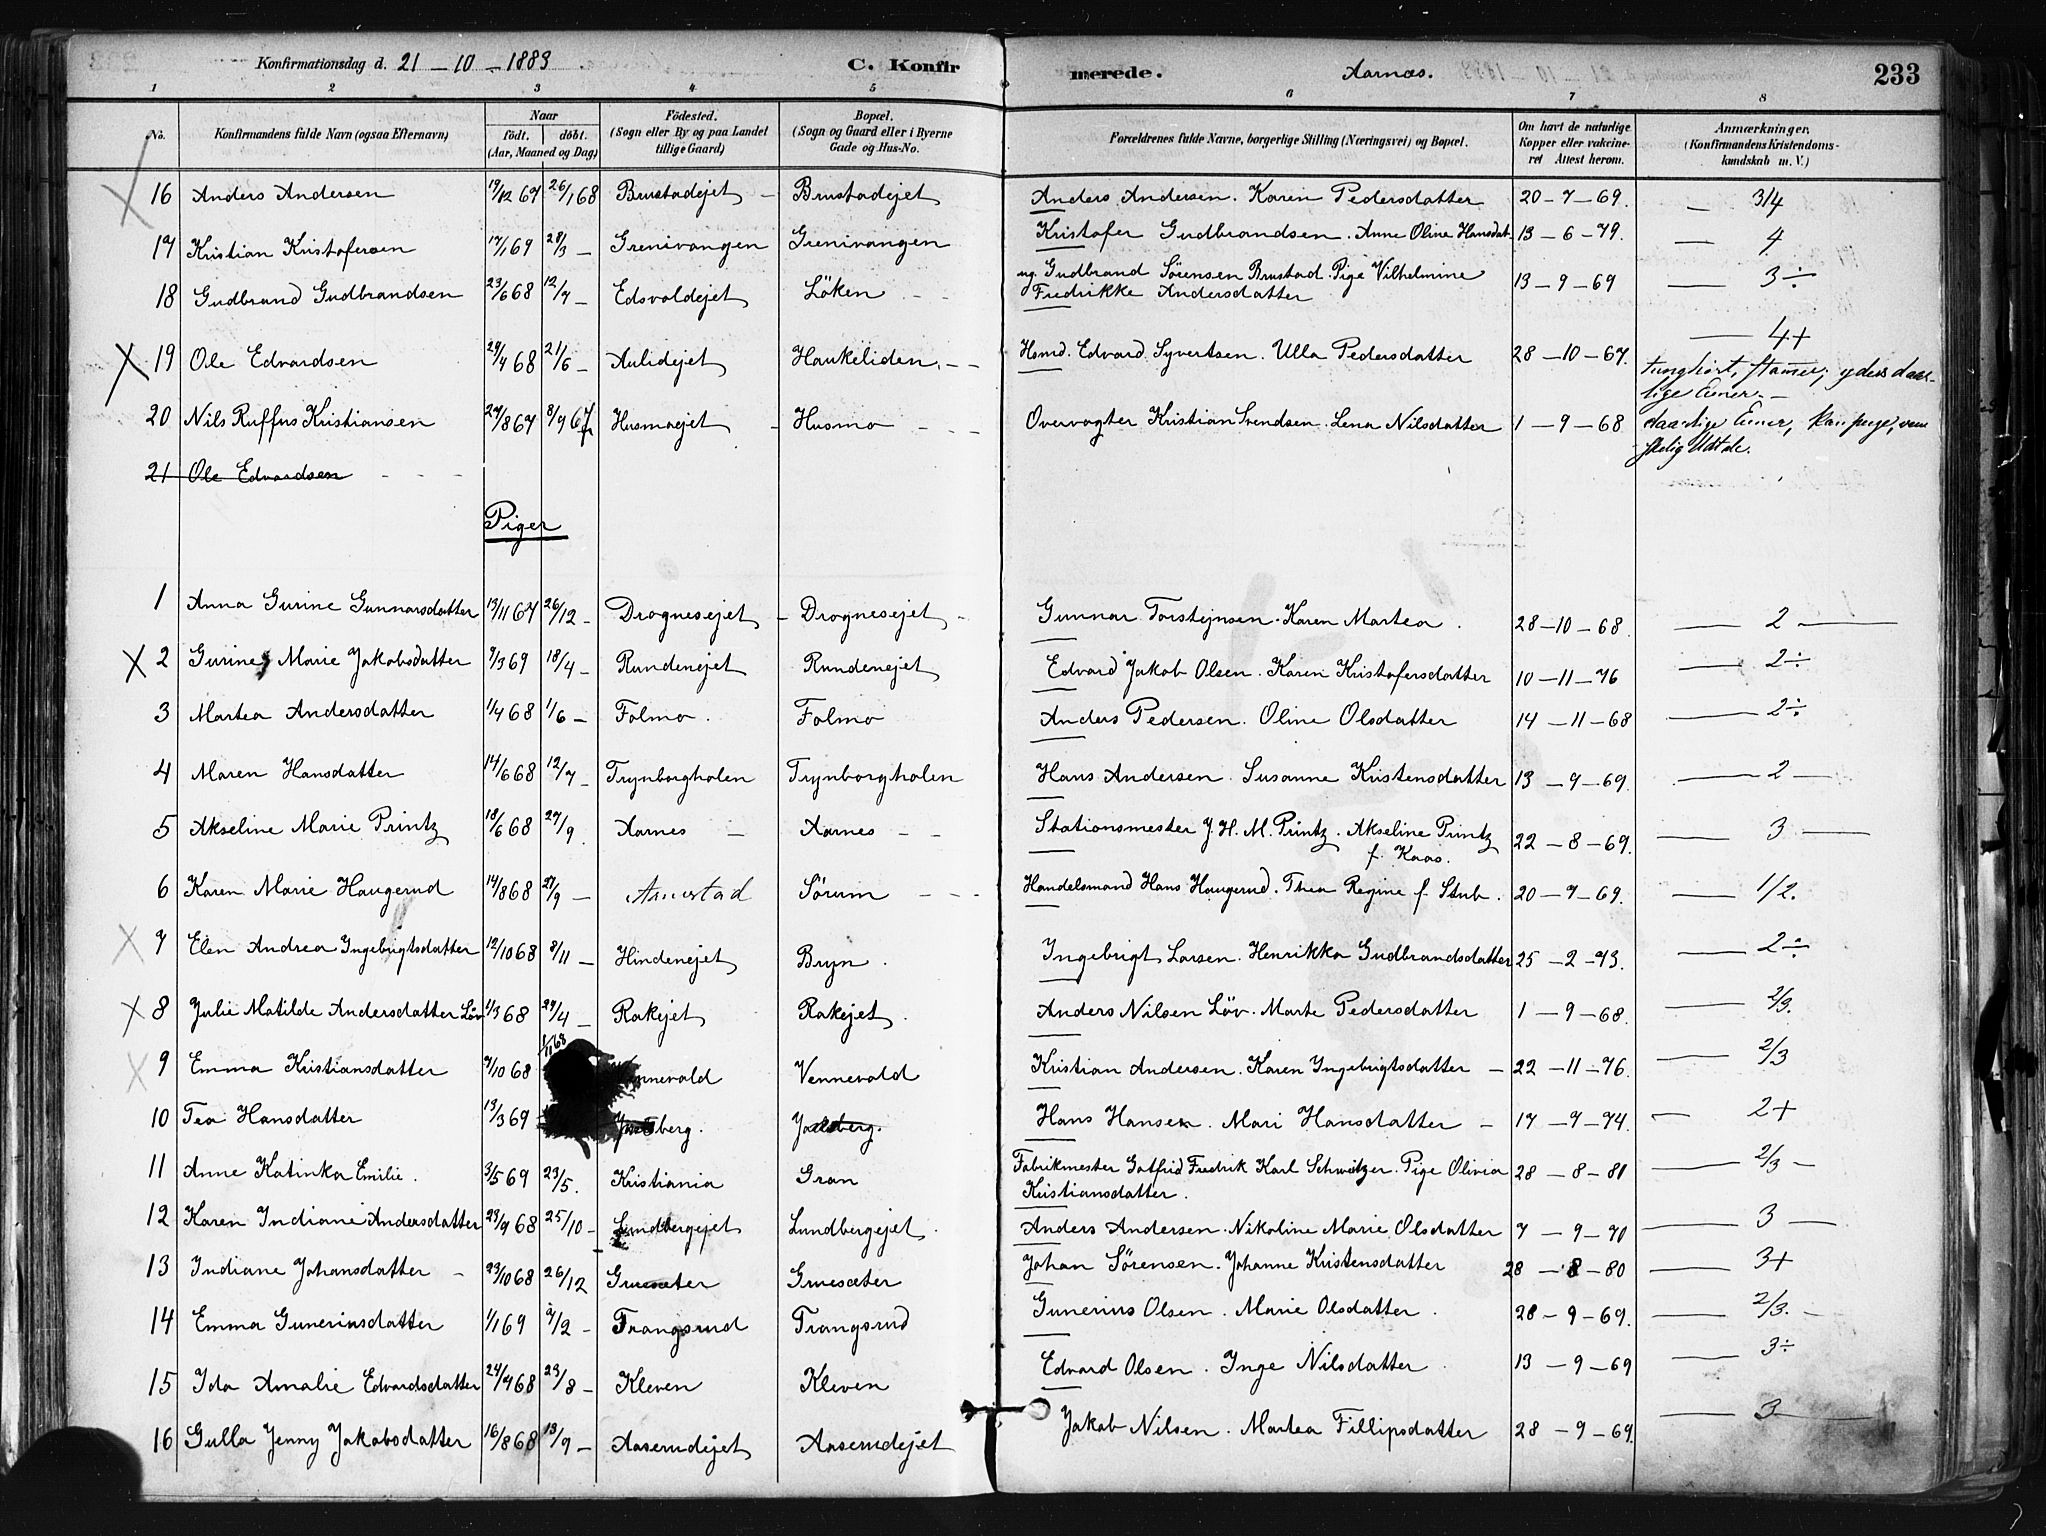 Konfirmationsdag d. 21 - 10 - 1883 C. Konfir merede. Aarnæs. 233
1 2 3 4 5 6 7 8
No. Konfirmandens fulde Navn (ogsaa Efternavn) Naar født. døbt. (Aar, Maaned og Dag) Fødested. (Sogn eller By og paa Landet tillige Gaard) Bopæl. (Sogn og Gaard eller i Byerne Gade og Hus-No. Forældrenes fulde Navne, borgerlige Stilling (Næringsvei) og Bopæl. Om havt de naturlige Kopper eller vakcineret Attest herom. Anmærkninger. (Konfirmandens Kristendomskundskab m. V.)
16 Anders Andersen 19/12 67 26/1 68 Brustadejet - Brustadejet Anders Andersen. Karen Pedersdatter 20-7-69. — 3/4
17 Kristian Kristofersen 17/1 69 28/3 - Grenivangen Grenivangen Kristofer Gudbrandsen. Anne Oline Hansdat. 13-6-79. — 4
18 Gudbrand Gudbrandsen 23/6 68 12/7 - Edsvoldejet Löken - - ug. Gudbrand Sörensen Brustad. Pige Vilhelmine 13-9-69 — 3÷
Fredrikke Andersdatter
19 Ole Edvardsen 29/4 68 21/6 - Aulidejet Haukeliden. - - Hsmd. Edvard Syvertsen. Ulla Pedersdatter 28-10-67. — 4+
tunghört, stammer, yderst daar-
lige Evner. -
20 Nils Ruffus Kristiansen 27/8 67 8/9 67 Husmoejet - Husmo - - - Overvogter Kristian Svendsen. Lena Nilsdatter 1-9-68 daarlige Evner,
21 Ole Edvardsen - - -
Piger
1 Anna Gurine Gunnarsdatter 13/11 67 26/12 - Drognesejet - Drognesejet - Gunnar Torstejnsen. Karen Martea. 28-10-68. — 2 —
2 Gurine Marie Jakobsdatter 9/3 69 18/4 - Rundenejet Rundenejet Edvard Jakob Olsen. Karen Kristofersdatter 10-11-76 — 2÷
3 Martea Andersdatter 1/4 68 1/6 - Folmo. Folmo Anders Pedersen. Oline Olsdatter 14-11-68 — 2÷
4 Maren Hansdatter 14/6 68 12/7 - Trynborgholen Trynborgholen Hans Andersen. Susanne Kristensdatter 13-9-69. — 2 —
5 Akseline Marie Printz 18/6 68 27/9. Aarnes - Aarnes - - Stationsmester J. H. M. Printz. Akseline Printz 22-8-69. — 3 —
f. Kaas.
6 Karen Marie Haugerud 14/8 68 27/9 - Arnestad Sörum - - - Handelsmand Hans Haugerud. Thea Regine f. Stub. 20-7-69. — 1/2.
7 Elen Andrea Ingebrigtsdatter 12/10 68 8/11 - Hindenejet Bryn. Ingebrigt Larsen. Henrikka Gudbrandsdatter 25-2-73. — 2÷
8 Julie Matilde Andersdatter Löv 1/3 68 29/4 - Rakejet Rakejet. Anders Nilsen Löv. Marte Pedersdatter 1-9-68. — 2/3.
9 Emma Kristiansdatter 9/10 68 Vennevold Vennevold Kristian Andersen. Karen Ingebrigtsdatter - 22-11-76. — 2/3
10 Tea Hansdatter 13/3 69 Hans Hansen. Mari Hansdatter - 17-9-74. — 2+
11 Anne Katinka Emilie. 3/5 69 23/5. Kristiania Gran Fabrikmester Gotfrid Fredrik Karl Schweitzer. Pige Olivia 28-8-81 — 2/3 -
Kristiansdatter.
12 Karen Indiane Andersdatter 23/9 68 25/10 - Lundbergejet Lundbergejet. Anders Andersen. Nikoline Marie Olsdatter 7-9-70 — 3 —
13 Indiane Johansdatter - 23/10 68 26/12 Gruesæter Gruesæter Johan Sörensen. Johanne Kristensdatter 28-8-80 — 3+
14 Emma Gunerinsdatter 1/1 69 2/2 - Trangsrud Trangsrud Gunerius Olsen. Marie Olsdatter. 28-9-69. — 2/3. -
15 Ida Amalie Edvardsdatter 24/7 68 23/8 - Kleven Kleven Edvard Olsen. Inge Nilsdatter. 13-9-69 — 3÷
16 Gulla Jenny Jakobsdatter 16/8 68 13/9 - Aaserudejet Aaserudejet Jakob Nilsen. Martea Fillipsdatter 28-9-69. — 3 —